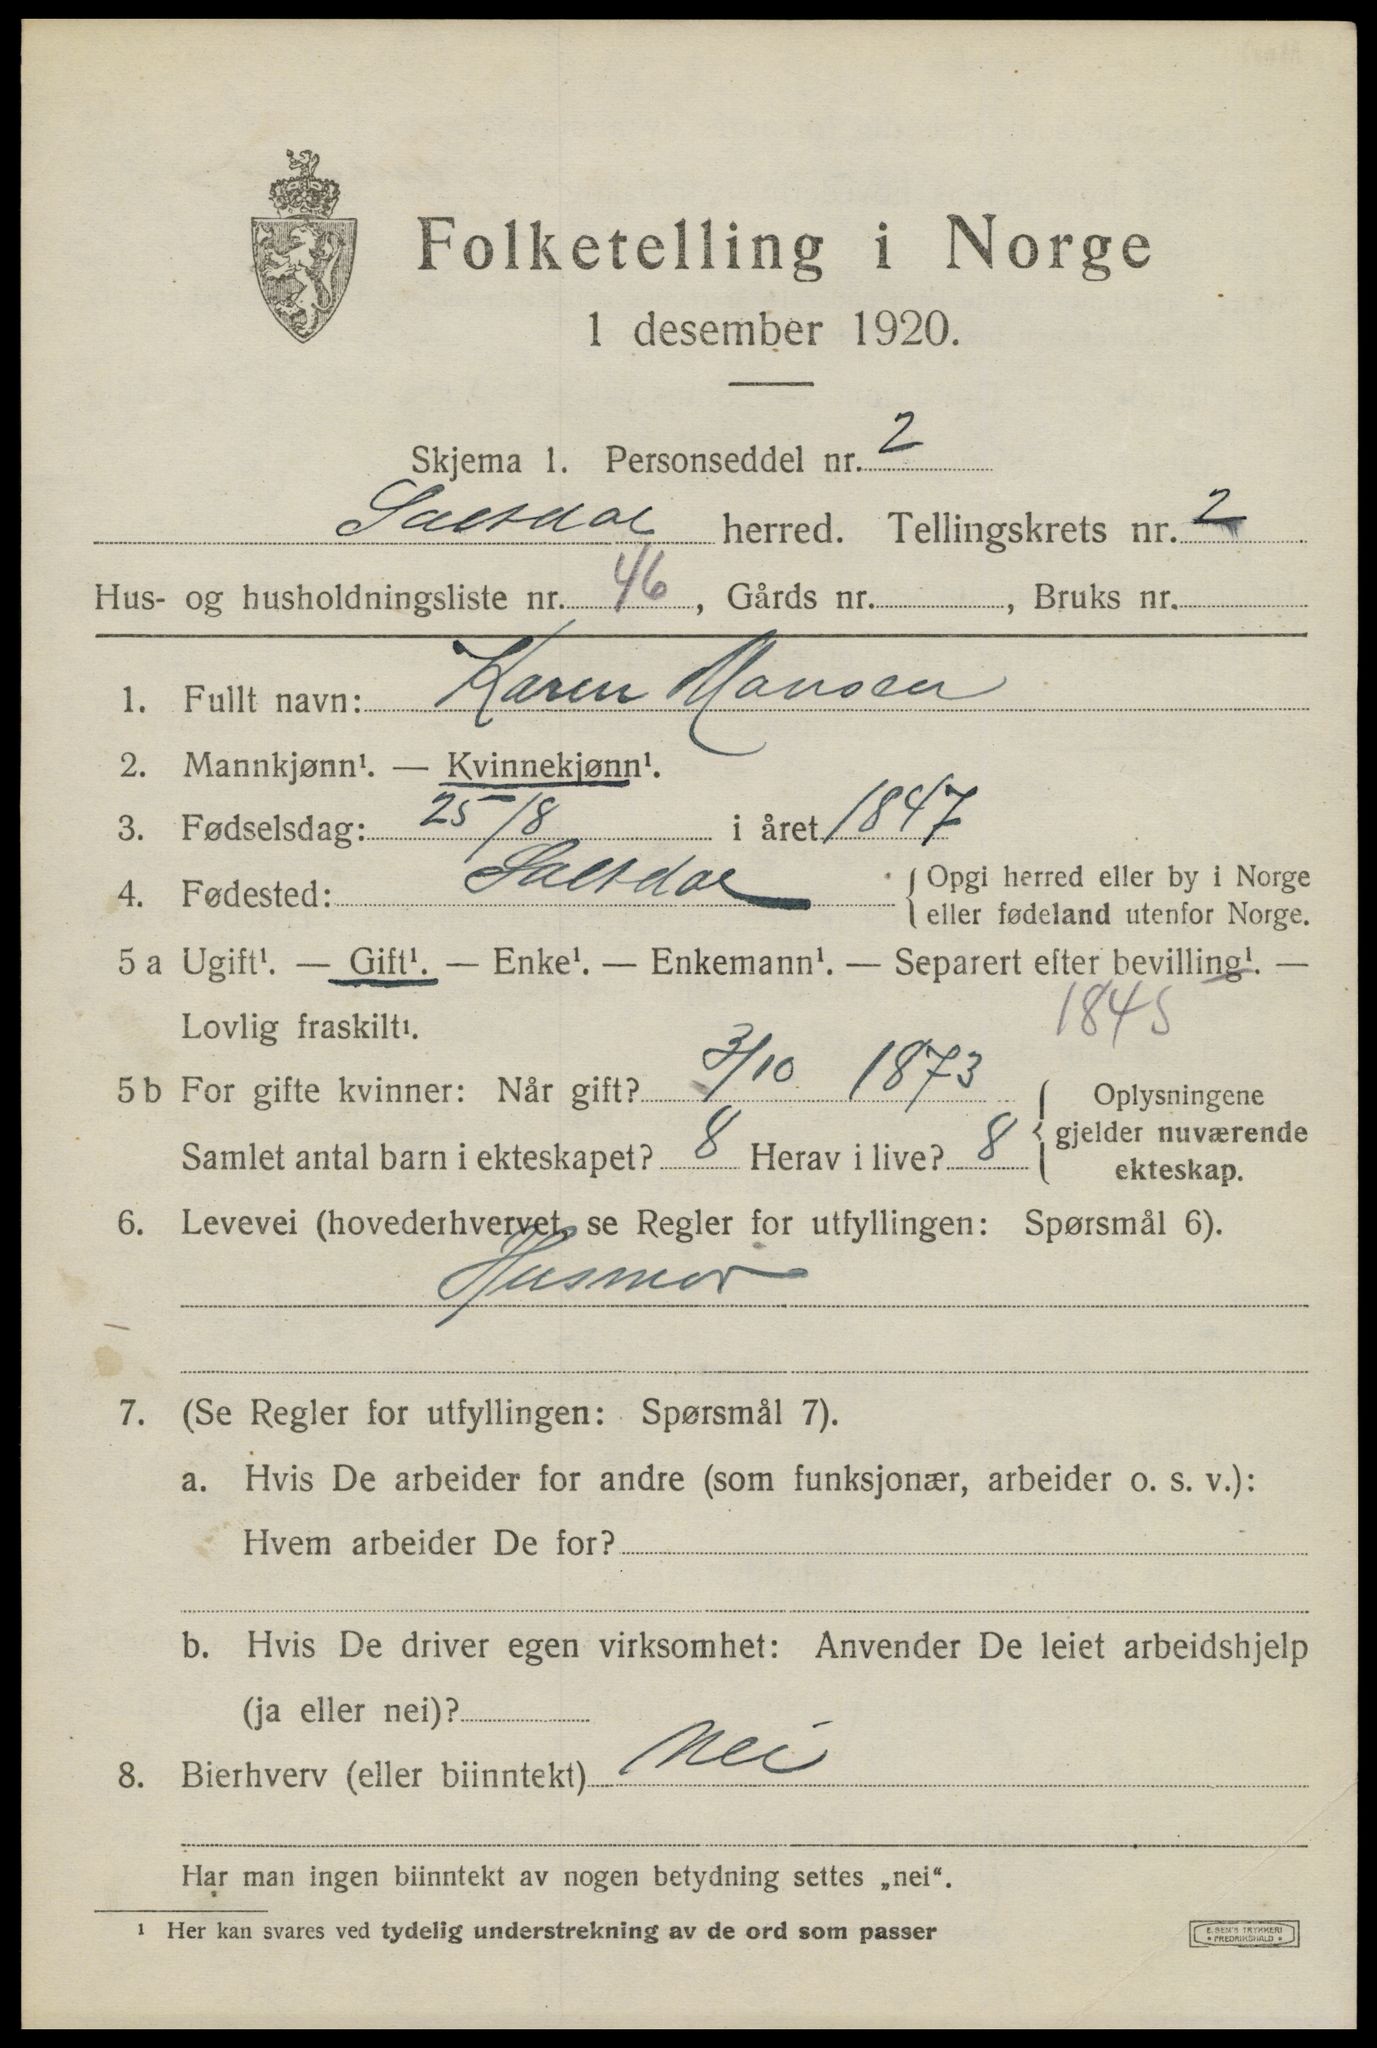 Folketelling i Norge
1 desember 1920.
Skjema 1. Personseddel nr. 2
Saltdal herred. Tellingskrets nr. 2
Hus- og husholdningsliste nr. 46, Gårds nr. , Bruks nr.
1. Fullt navn: Karen Hansen
2. Mannkjønn¹. — Kvinnekjønn¹.
3. Fødselsdag: 25/8 i året 1847
4. Fødested: Saltdal { Opgi herred eller by i Norge
eller fødeland utenfor Norge.
5 a Ugift¹. — Gift¹. — Enke¹. — Enkemann¹. — Separert efter bevilling¹. —
Lovlig fraskilt¹. 1845
5 b For gifte kvinner: Når gift? 3/10 1873
Samlet antal barn i ekteskapet? 8 Herav i live? 8
{ Oplysningene
gjelder nuværende
ekteskap.
6. Levevei (hovederhvervet, se Regler for utfyllingen: Spørsmål 6).
Husmor
7. (Se Regler for utfyllingen: Spørsmål 7).
a. Hvis De arbeider for andre (som funksjonær, arbeider o. s. v.):
Hvem arbeider De for?
b. Hvis De driver egen virksomhet: Anvender De leiet arbeidshjelp
(ja eller nei)?
8. Bierhverv (eller biinntekt) Nei
Har man ingen biinntekt av nogen betydning settes „nei“.
¹ Her kan svares ved tydelig understrekning av de ord som passer
E. SEM'S TRYKKERI
• FREDRIKSHALD •